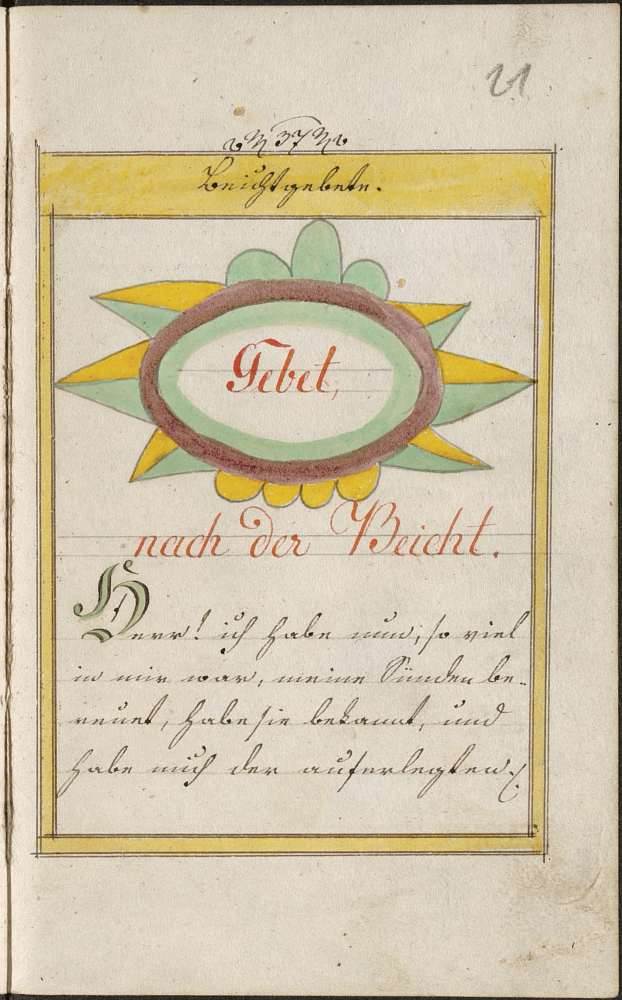 21
37
Beichtgebete.
Gebet,
nach der Beicht.
Herr! ich habe nun, so viel
in mir war, meine Sünden be-
reuet, habe sie bekannt, und
habe mich der auferlegten